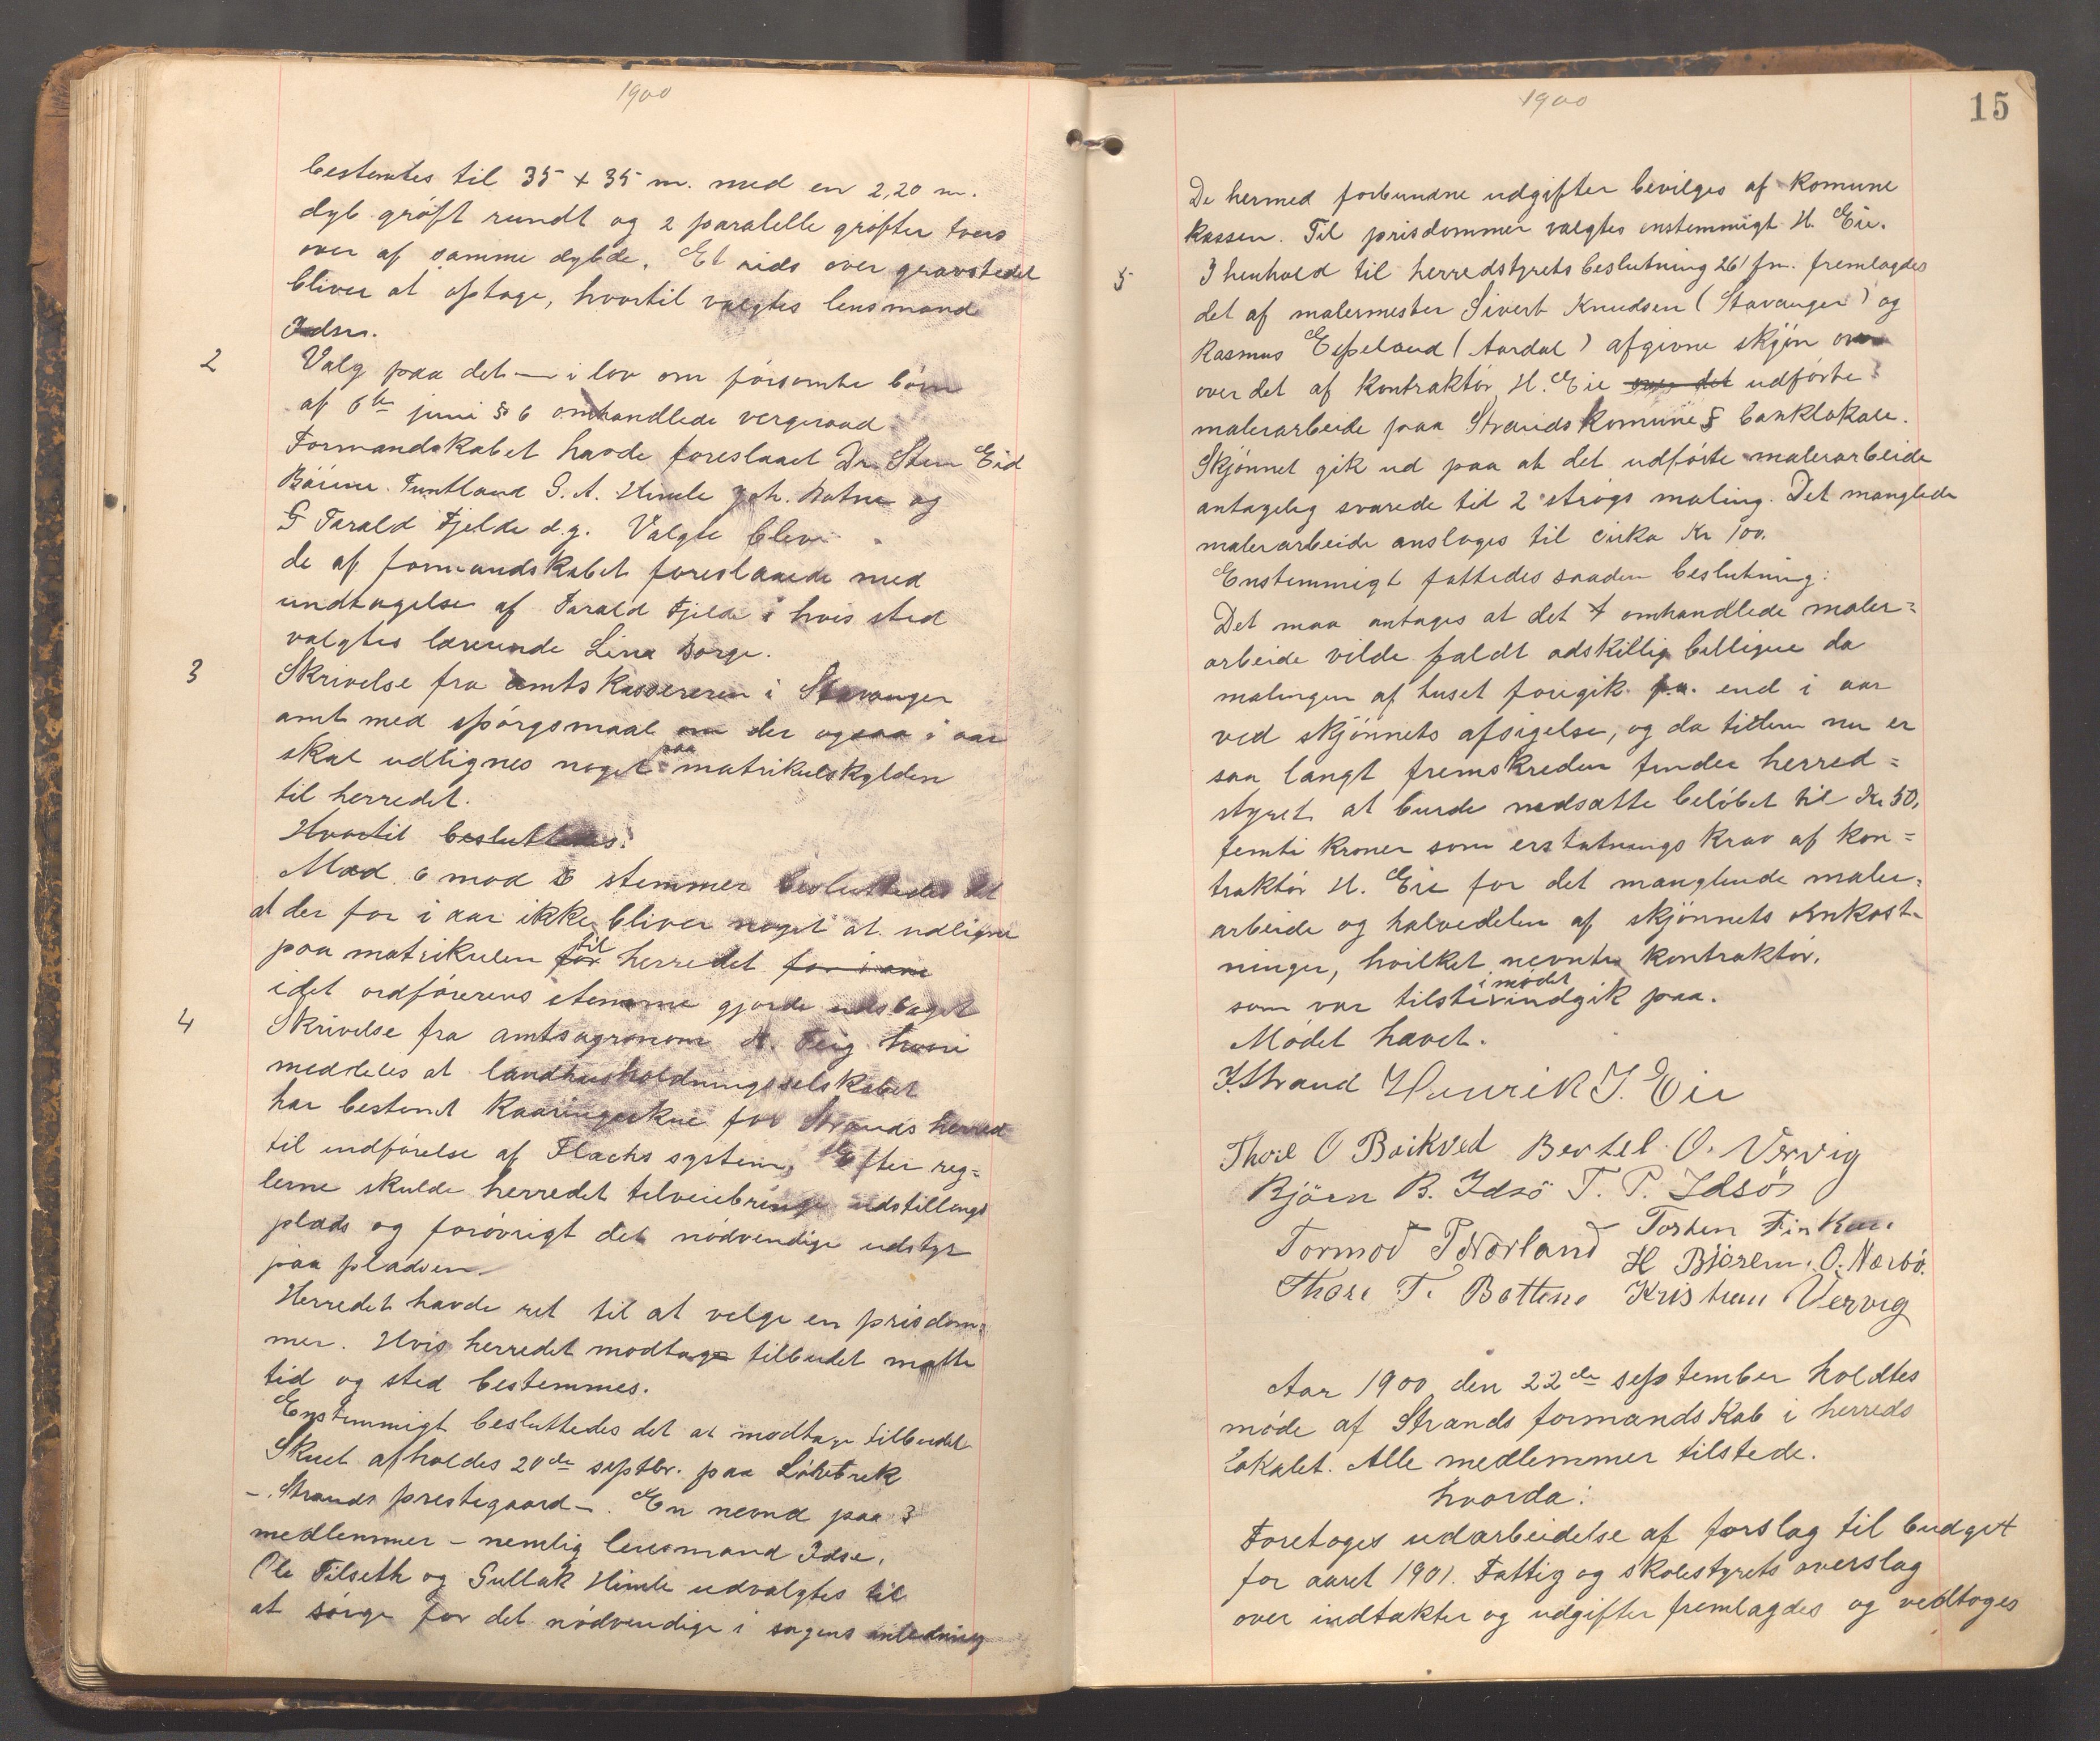 1900
bestemtes til 35 + 35 m. med en 2,20 m.
dyb grøft rundt og 2 paralelle grøfter tvers
over af samme dybde. Et rids over gravstedet
bliver at optage, hvortil valgtes lensmand
Idsø.
2 Valg paa det — i lov om forsømte børn
af 6te juni § 6 omhandlede vergeraad
Formandskabet havde foreslaaet Dr. Steen Eid
Tuntland G. A. Himle Joh. Botne og
G Tarald Fjelde d.y. Valgte blev
de af formandskabet foreslaaede med
undtagelse af Tarald Fjelde i hvis sted
valgtes lærerinde Lina Borge.
3 Skrivelse fra amtskassereren i Stavanger
amt med spørgsmaal om der ogsaa i aar
skal udlignes noget paa matrikulskylden
til herredet.
Hvortil besluttedes:
Med 6 mod 6 stemmer besluttedes det
at der for i aar ikke bliver noget at udligne
paa matrikulen for til herredet for i aar
idet ordførerens stemme gjorde udslaget
4 Skrivelse fra amtsagronom A. Feig hvori
meddeles at landhusholdningsselskabet
har bestemt Kaaringsskue for Strands herred
til indførelse af Flachs system. Efter reg=
lerne skulde herredet tilveiebringe udstillings
plads og forøvrigt det nødvendige udstyr
paa pladsen.
Herredet havde ret til at velge en prisdom=
mer. Hvis herredet modtage tilbudet maatte
tid og sted bestemmes.
Enstemmigt besluttedes det at modtage tilbudet
Skuet afholdes 20de septbr. paa
-. Strands prestegaard -. En nevnd paa 3
medlemmer - nemlig lensmand Idsø,
Ole Tilseth og Gullak Himle udvalgtes til
at sørge for det nødvendige i sagens anledning
1900
15
De hermed forbundne udgifter bevilges af Komune
kassen. Til prisdommer valgtes enstemmigt H. Eie.
5 I henhold til herredstyrets beslutning 26/ fm. fremlagdes
det af malermester Sivert Knudsen (Stavanger) og
Rasmus Espeland (Aardal) afgivne skjøn over
over det af Kontraktør H. Eie over det udførte
malerarbeide paa Strands Komunes banklokale.
Skjønnet gik ud paa at det udførte malerarbeide
antagelig svarede til 2 strøgs maling. Det manglede
malerarbeide ansloges til cirka Kr 100.
Enstemmigt fattedes saaden beslutning:
Det maa antages at det omhandlede maler=
arbeide vilde faldt adskillig billigere da
malingen af huset foregik end i aar
ved skjønnets afsigelse, og da tiden nu er
saa langt fremskreden finder herred=
styret at burde nedsætte beløbet til Kr 50,
femti kroner som erstatnings krav af kon=
traktør H. Eie for det manglende maler=
arbeide og halvedelen af skjønnets omkost-
ninger, hvilket nevnte Kontraktør,
som var tilsted i mødet indgik paa.
Mødet hævet.
Strand Henrik J. Eie
Thore O Barkved Bertel O. Vervig
Bjørn B. Idsö T. P. Idsö
Tormod P Norland Torsten Finkeni
H Bjørem. O. Nærbø.
Thore T. Bottene Kristian Vervig
Aar 1900 den 22de september holdtes
møde af Strands formandskab i herreds
lokalet. Alle medlemmer tilstede.
hvorda:
Foretoges udarbeidelse af forslag til budget
for aaret 1901. Fattig og skolestyrets overslag
over indtækter og udgifter fremlagdes og vedtoges